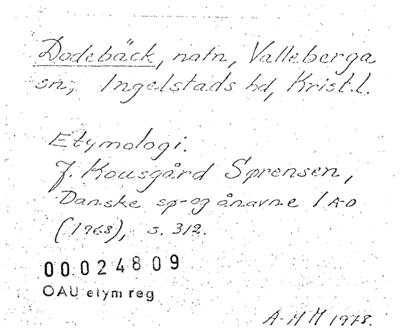 Dodebäck, natn, Valleberga
sn, Ingelstads hd, Krist.l.
Etymologi.
J. Kousgård Sørensen,
Danske sø- og ånavne 1 A-D
(1968), s. 312.
00.024809
OAU etym reg
A-M M 1978.